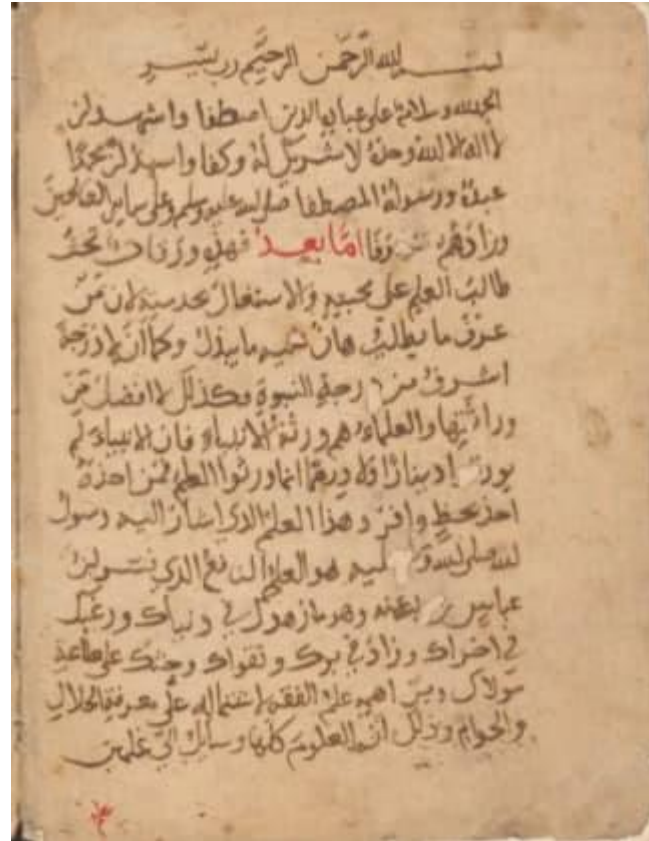 بسم الله الرحمن الرحيم رب يسر
الحمد لله وسلام على عباده الذين اصطفا واشهد ان
لا اله الا الله وحده لا شريك له وكفا واشهد ان محمدا
عبده ورسوله المصطفا صلى الله عليه وسلم وعلى ساير الصالحين
وزادهم اما بعد فهذه ورقات تحف
طالب العلم على تحبيبه والاشتغال لان من
عرف ما يطلب هان عليه ما يبذل وكما ان لا درجة
اشرف من درجة النبوة فكذلك لا افضل من
وراثتها والعلماء هم ورثة الانبياء فان الانبياء لم
يورثوا دينارا ولا درهما انما ورثوا العلم فمن اخذه
اخذ بحظ وافر وهذا العلم الذي اشار اليه رسول
الله صلى الله عليه هو العلم النافع الذي
وهو ما زهدك في دنياك ورغبك
في اخراك وزاد في برك وتقواك وحثك على طاعة
مولاك علم الفقه لاشتماله على معرفة الحلال
والحرام وذلك ان العلوم كلها وسايل الى علمين